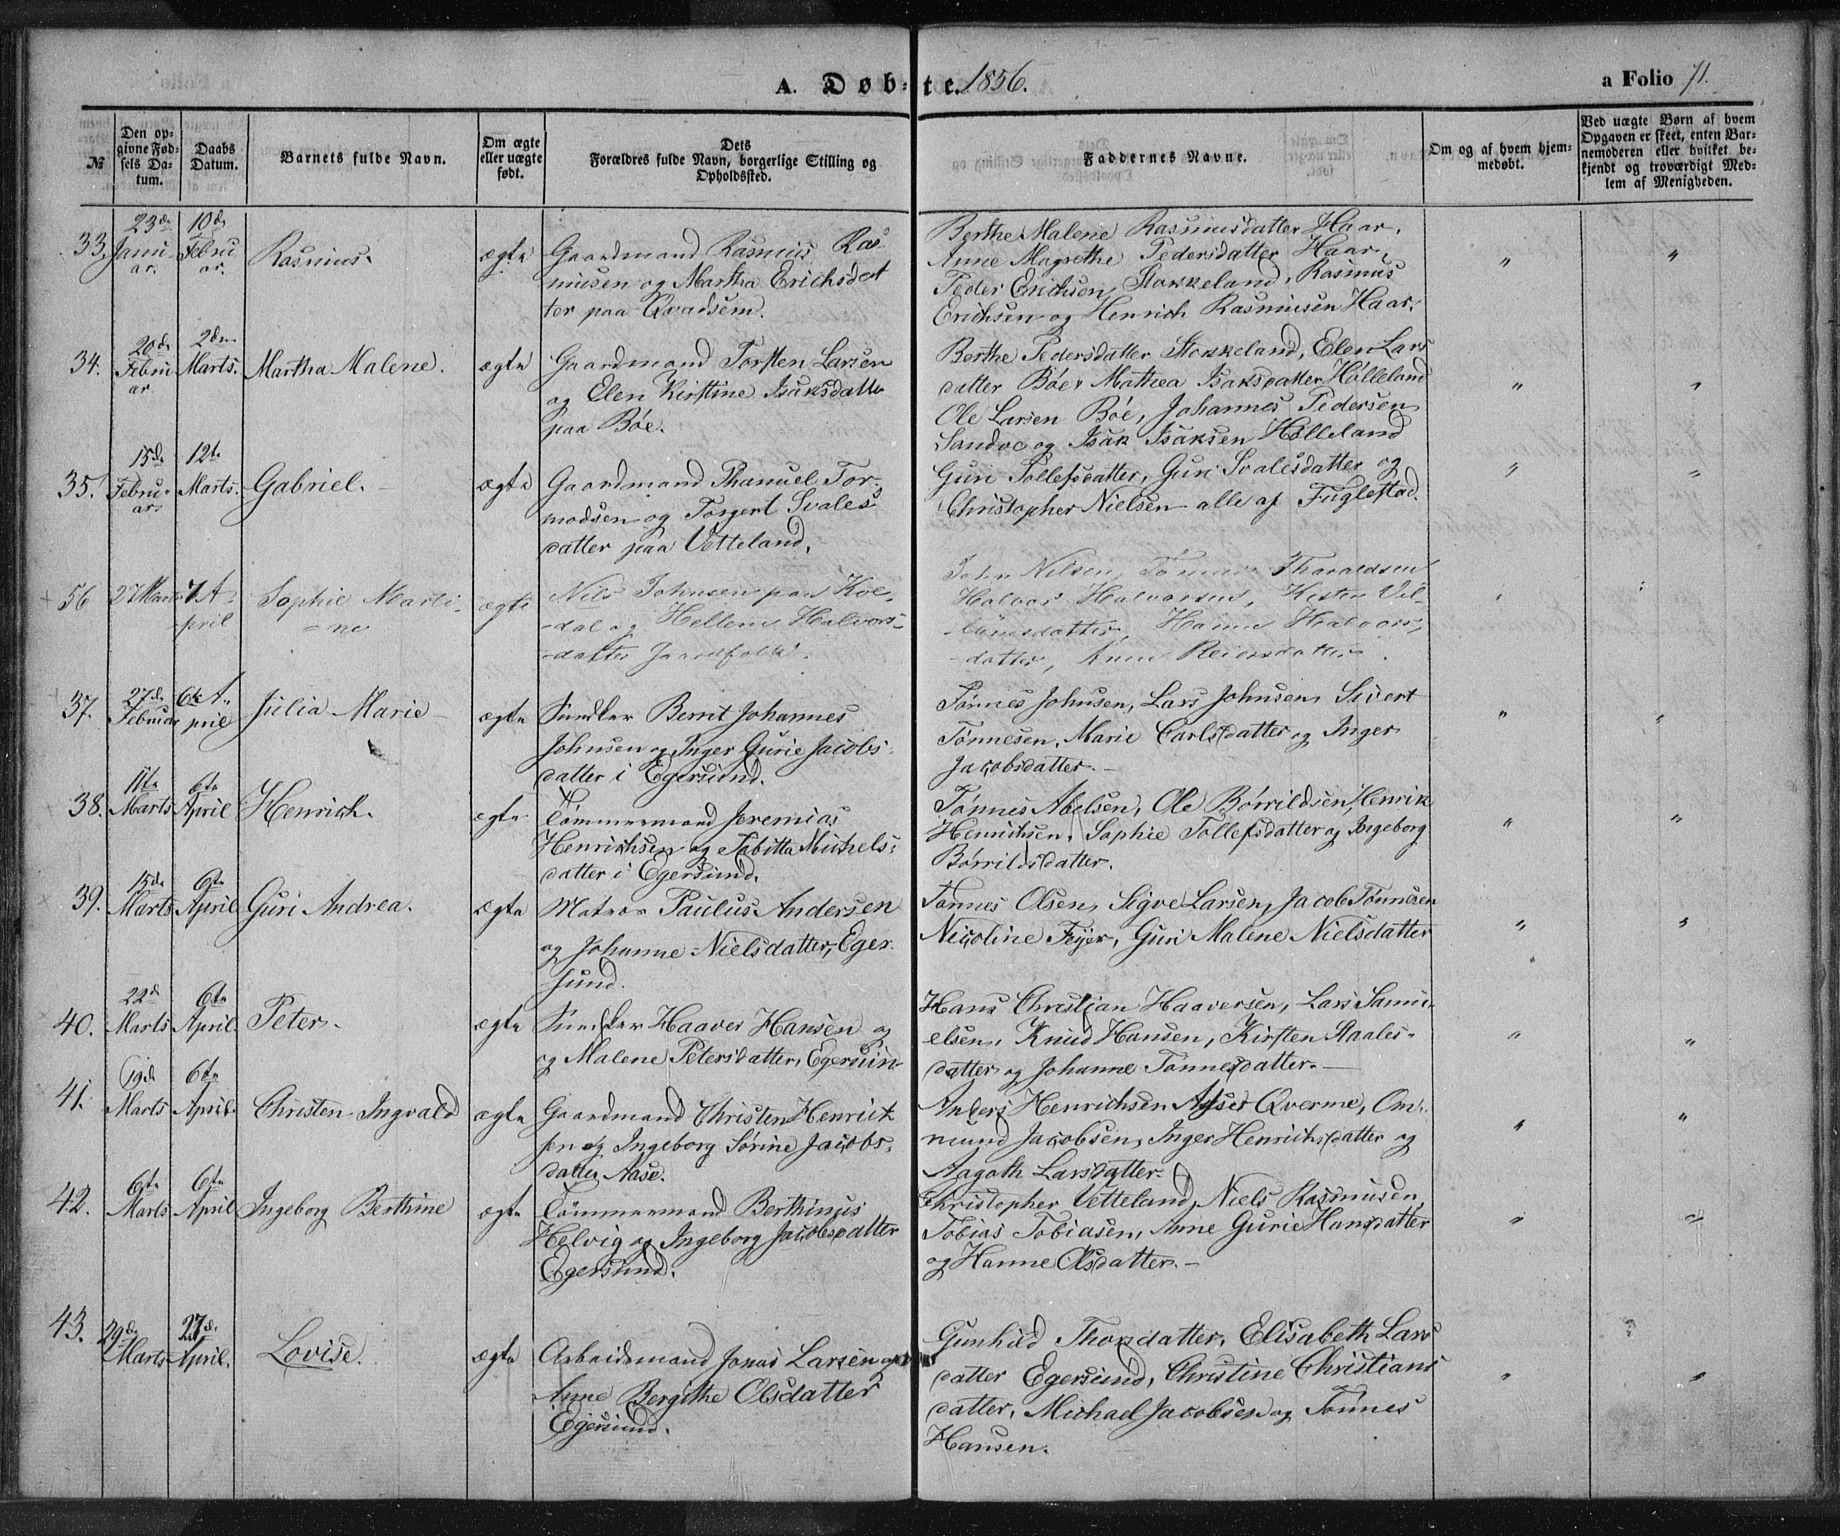 A. Døb- te. 1856. a Folio 71.
№ Den opgivne Fødsels Datum. Daabs Datum. Barnets fulde Navn. Om ægte eller uægte født. Dets Forældres fulde Navn, borgerlige Stilling og Opholdssted. Faddernes Navne. Om og af hvem hjemmedøbt. Ved uægte Børn af hvem Opgaven er skeet, enten Barnemoderen eller hvilket bekjendt og troværdigt Medlem af Menigheden.
33. 23de Januar. 10de Februar. Rasmus. ægte
Gaardmand Rasmus Ras
musen og Martha Erichsdat
ter paa Qvadsem.
Berthe Malene Rasmusdatter Haar.
Anne Magrethe Pedersdatter Haar,
Peder Erichsen Stokkeland, Rasmus
Erichsen og Henrich Rasmusen Haar. " "
34. 20de Februar. 2den Marts. Martha Malene. ægte
Gaardmand Torsten Larsen
og Elen Kirstine Isaksdatte
paa Bøe.
Berthe Pedersdatter Stokkeland, Elen Lars
datter Bøe, Mathea Isaksdatter Hølleland
Ole Larsen Bøe, Johannes Pedersen
Sandvе og Isak Isaksen Hølleland " "
35. 15de Februar. 12te Marts. Gabriel. ægte
Gaardmand Thanuel Tor
modsen og Torgert Svales
datter paa Vetteland.
Guri Tollefsdatter, Guri Svalesdatter og
Christopher Nielsen alle af Fuglestad. " "
56 27 Marts 7 April Sophie Marti-
-ne ægte
Nils Johnsen paa Koe-
-dal og Hellene Halvors-
-datter Gaardfolk.
John Nilsen, Tønnes Tharaldsen
Halvor Halvorsen, Kesten Vil-
-datter, Hanne Halvors-
-datter, Anne Reiersdatter. " "
37. 27de Februar 6te April Julia Marie ægte
Sundkar Bernt Johannes
Johnsen og Inger Gurie Jacobs-
datter i Egersund.
Tønnes Johnsen, Lars Johnsen, Sivert
Tønnesen, Marie Carlsdatter og Inger
Jacobsdatter. " "
38. 11te Marts 6te April Henrich. ægte
Tømmermand Jeremias
Henrichsen og Tabitta Michels-
datter i Egersund.
Tønnes Abelsen, Ole Børrildsen, Henrik
Henrichsen, Sophie Tollefsdatter og Ingeborg
Børrildsdatter. " "
39. 15de Marts 6te April Guri Andrea. ægte
Matros Paulus Andersen
og Johanne Nielsdatter, Eger-
sund.
Tønnes Olsen, Sigve Larsen, Jacob Tønnesen
Nicoline Feyer, Guri Malene Nielsdatter " "
40. 22de Marts 6te April. Peter. ægte
Sundkar Haaver Hansen og
og Malene Petersdatter, Egersun
Hans Christian Haaversen, Lars Samu-
elsen, Knud Hansen, Kirsten Staales-
datter og Johanne Tønnesdatter. " "
41. 19de Marts 6te April. Christen Ingvald ægte
Gaardmand Christen Henrik
sen og Ingeborg Sørine Jacobs-
datter Aase.
Anders Henrichsen Qverme, Om-
mund Jacobsen, Inger Henrichsdatter og
Aagoth Larsdatter. " "
42. 6te Marts 6te April Ingeborg Berthine ægte
Tømmermand Berthinus
Helvig og Ingeborg Jacobsdatter
Egersund.
Christopher Vetteland, Niels Rasmusen,
Tobias Tobiasen, Anne Gurie Hansdatter
og Hanne Olsdatter. " "
43. 29de Marts 27de April. Lovise. ægte
Arbeidsmand Jonas Larsen og
Anne Bergithe Olsdatter
Egersund.
Gunhild Thorsdatter, Elisabeth Lars
datter Egersund, Christine Christians
datter, Michael Jacobsen og Tønnes
Hansen. " "